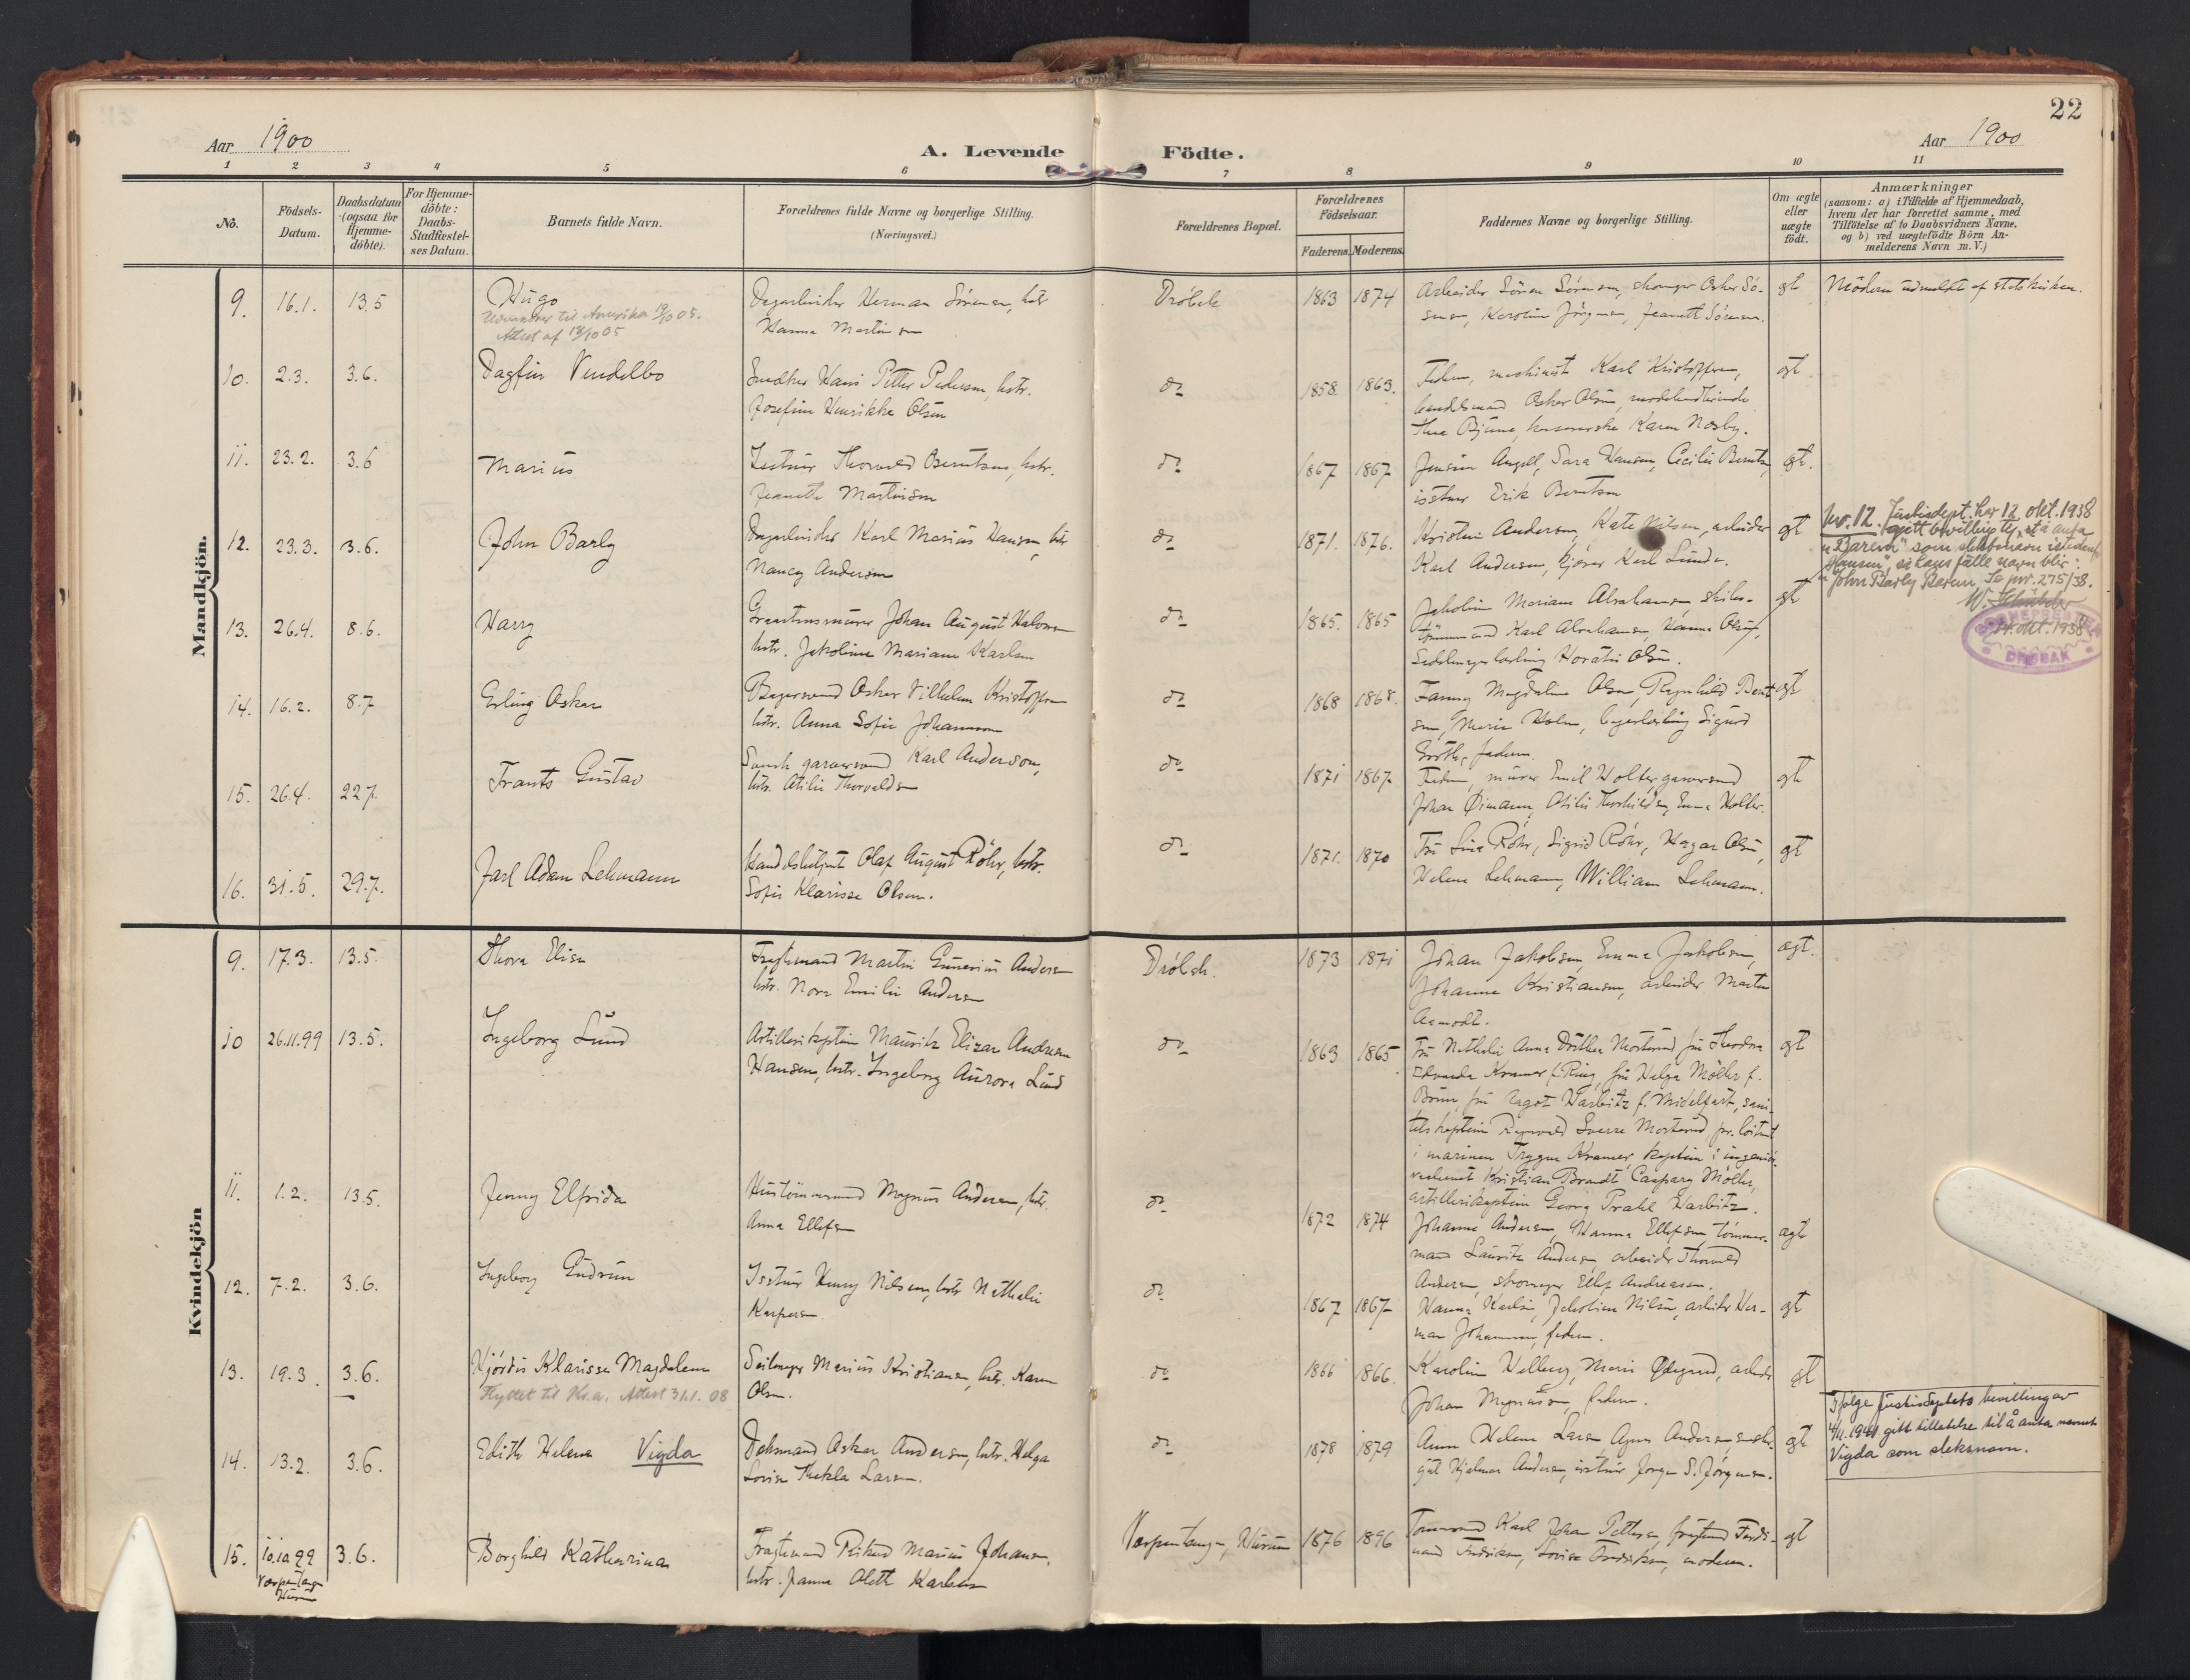 22
Aar 1900
A. Levende Födte.
Aar 1900
1 2 3 4 5 6 7 8 9 10 11
No.
Födsels-
Datum.
Daabsdatum
(ogsaa for
Hjemme-
döbte).
For Hjemme-
döbte:
Daabs-
Stadfæstel-
ses Datum.
Barnets fulde Navn.
Forældrenes fulde Navne og borgerlige Stilling.
(Næringsvei.)
Forældrenes Bopæl.
Forældrenes
Födselsaar.
Faderens. Moderens.
Faddernes Navne og borgerlige Stilling.
Om ægte
eller
uægte
födt.
Anmærkninger
(saasom: a) i Tilfælde af Hjemmedaab,
hvem der har forrettet samme, med
Tilföielse af to Daabsvidners Navne,
og b) ved uægtefödte Börn An-
melderens Navn m. V.)
Mandkjön.
9. 16.1. 13.5 Hugo
Udvandrer til Amerika 19/10 05.
Attest af 18/10 05
Dagarbeider Herman Sörensen, hstr.
Hanna Martinsen
Dröbak 1863 1874
Arbeider Sören Sörensen, skomager Oskar Sö-
rensen, Karoline Jörgensen, Jeanette Sörensen.
gt Möderen udmeldt af statskirken.
10. 2.3. 3.6. Dagfin Vendelbo
Snedker Hans Petter Pedersen, hstr.
Josefine Henrikke Olsen
do 1858. 1863.
Faderen, maskinist Karl Kristoffersen,
handelsmand Oskar Olsen,
Karen Nosby.
ægt
11. 23.2. 3.6 Marius
Thorvald Berntsen, hstr.
Jeanette Martinsen
do 1867 1867
Jensine Angell, Sara Hansen, Cecilie Berntsen,
Erik Berntsen
ægt.
12. 23.3. 3.6. John Barly
Dagarbeider Karl Marius Hansen, hstr.
Nancy Andersen
do 1871. 1876.
Kristine Andersen, Kate Nilsen, arbeider
Karl Andersen, kjörer Karl Lunde.
gt
Nr. 12. Justisdept. har 12. okt. 1938
gitt bevilling til å anta
som slektsnavn istedenfor
"Hansen", så hans fulle navn blir:
"John Barly Se jnr. 275/38.
14. okt. 1938
DRØBAK
13. 26.4. 8.6. Harry
Johan August Halvorsen
hstr. Jakobine Mariane Karlsen
do 1865. 1865
Jakobine Mariane Abrahamsen, skibs-
tömmermand Karl Abrahamsen, Hanna Olsen,
Sadelmagerlærling Horatio Olsen.
gt
14. 16.2. 8.7 Erling Oskar
Bagersvend Oskar Vilhelm Kristoffersen
hstr. Anna Sofie Johannesen
do 1868 1868.
Fanny Magdaline Olsen, Ragnhild Bernt-
sen, Marie Holm, bagerlærling Sigurd
faderen.
ægt
15. 26.4. 22.7. Frants Gustav
Svensk garversvend Karl Anderson,
hstr. Otilie Thorvaldsen
do 1871 1867.
Faderen, murer Emil Holter, garversvend
Johan Öimann, Otilie Thorkildsen, Emma Holter.
gt
16. 31.5. 29.7. Jarl Adam Lehmann
Handelsbetjent Olaf August Röhr, hstr.
Sofie Klarisse Olsen.
do 1871. 1870
Fru Lina Röhr, Sigrid Röhr, Hagar Olsen,
Helene Lehmann, William Lehmann.
gt
Kvindekjön
9. 17.3. 13.5. Thora Elise
Fragtemand Martin Gunerius Andersen
hstr. Nora Emilie Andersen
Dröbak. 1873 1871
Johan Jakobsen, Emma Jakobsen,
Johanne Kristiansen, arbeider Martin
Aamodt.
ægt.
10 26.11.99 13.5. Ingeborg Lund
Artillerikaptein Mauritz Elizar Andreas
Hansen, hstr. Ingeborg Aurora Lund
do 1863 1865
Fru Nathalie Anna Dorthea Morterud, fru Theodora
Edvarda Kramer f. Ring, fru Helga Möller f.
Bruun, fru Ragot Harbitz f. Midelfart, sani-
tetskaptein Ragnvald Sverre Morterud, pr. löitnant
i marinen Trygve Kramer, kaptein i ingeniör-
vaabenet Kristian Brandt Caspary Möller,
artillerikaptein Georg Prahl Harbitz.
gt
11. 1.2. 13.5. Jenny Elfrida
Hustömmermand Magnus Andersen, hstr.
Anna Ellefsen
do 1872 1874
Johanne Andersen, Hanna Ellefsen, tömmer-
mand Lauritz Andersen, arbeider Thorvald
Andersen, skomager Ellef Andreasen.
ægt
12. 7.2. 3.6. Ingeborg Gudrun
Henry Nilsen, hstr. Nathalie
Kaspersen
do 1867 1867
Hanna Karlsen, Jakobine Nilsen, arbeider Her-
man Johannesen, faderen.
gt
13. 19.3. 3.6. Hjördis Klarisse Magdalene
Flyttet til Kr.a. Attest 31.1. 08
Seilmager Marius Kristiansen, hstr. Karen
Olsen.
do 1866 1866.
Karoline Welberg, Marie Ödegaard, arbeider
Johan Magnussen, faderen.
gt
14. 13.2. 3.6. Edith Helene Vigda
Dæksmand Oskar Andersen, hstr. Helga
Lovise Thekla Larsen.
do 1878 1879
Anna Helene Larsen, Agnes Andersen,
Hjalmar Andersen, Jörgen S. Jörgensen.
gt
Ifølge Justisdeptets bevilling av
4/11. 1941 gitt tillatelse til å anta navnet
Vigda som slektsnavn.
15. 10.10.99 3.6. Borghild Katharina
Værpentangen
Hurum
Fragtemand Rikard Marius Johansen,
hstr. Janna Oleth Karlsen
Værpentangen, Hurum 1876 1896
Karl Johan Pettersen, Ferdi-
nand Fredriksen, Lovise Fredriksen, moderen.
gt